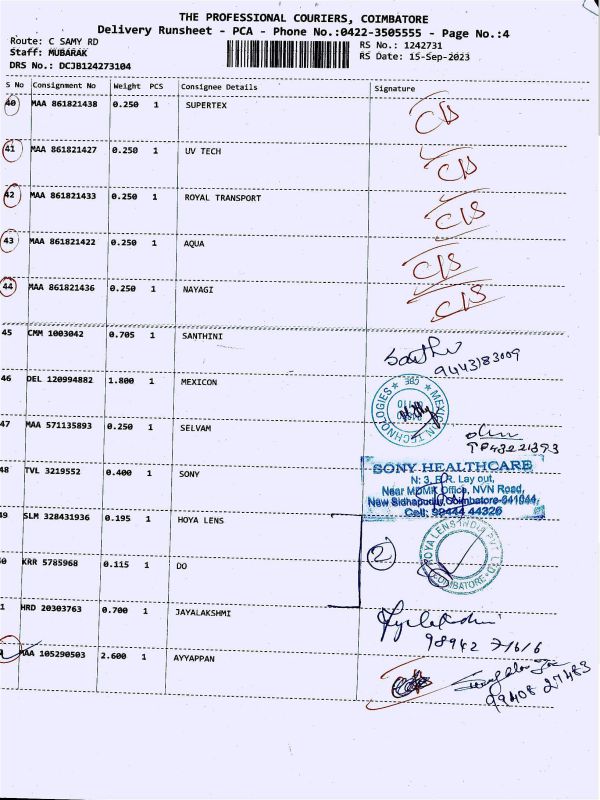 THE PROFESSIONAL COURIERS, COIMBATORE
Delivery Runsheet - PCA - Phone No.:0422-3505555 - Page No.:4
Route: C SAMY RD
Staff: MUBARAK
DRS No.: DCJB124273104
RS No.: 1242731
RS Date: 15-Sep-2023
S No Consignment No Weight PCS Consignee Details Signature
40 MAA 861821438 0.250 1 SUPERTEX
41 MAA 861821427 0.250 1 UV TECH
42 MAA 861821433 0.250 1 ROYAL TRANSPORT
43 MAA 861821422 0.250 1 AQUA
44 MAA 861821436 0.250 1 NAYAGI
45 CMM 1003042 0.705 1 SANTHINI
9443183009
46 DEL 120994882 1.800 1 MEXICON
MEXICAN TECHNOLOGIES CBE
47 MAA 571135893 0.250 1 SELVAM
48 TVL 3219552 0.400 1 SONY
SONY HEALTHCARE
N: 3, Lay out,
Near MDMK Office, NVN Road,
New Sidhapudur, Coimbatore-641044
Cell: 98444 44326
49 SLM 328431936 0.195 1 HOYA LENS
HOYA LENS INDIA PVT LTD COIMBATORE
2
0 KRR 5785968 0.115 1 DO
1 HRD 20303763 0.700 1 JAYALAKSHMI
98942 71616
MAA 105290503 2.600 1 AYYAPPAN
99408 27483